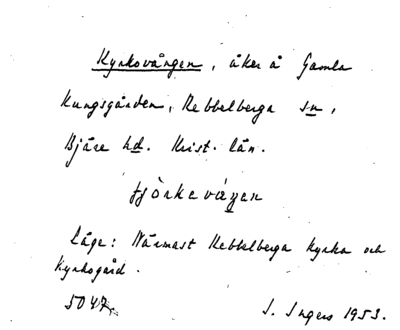 Kyrkovången, åker å Gamla
Kungsgården, Rebbelberga sn,
Bjäre hd. Krist. län.
Läge: Närmast Rebbelberga kyrka och
Kyrkogård.
5047.
I. Ingers 1953.